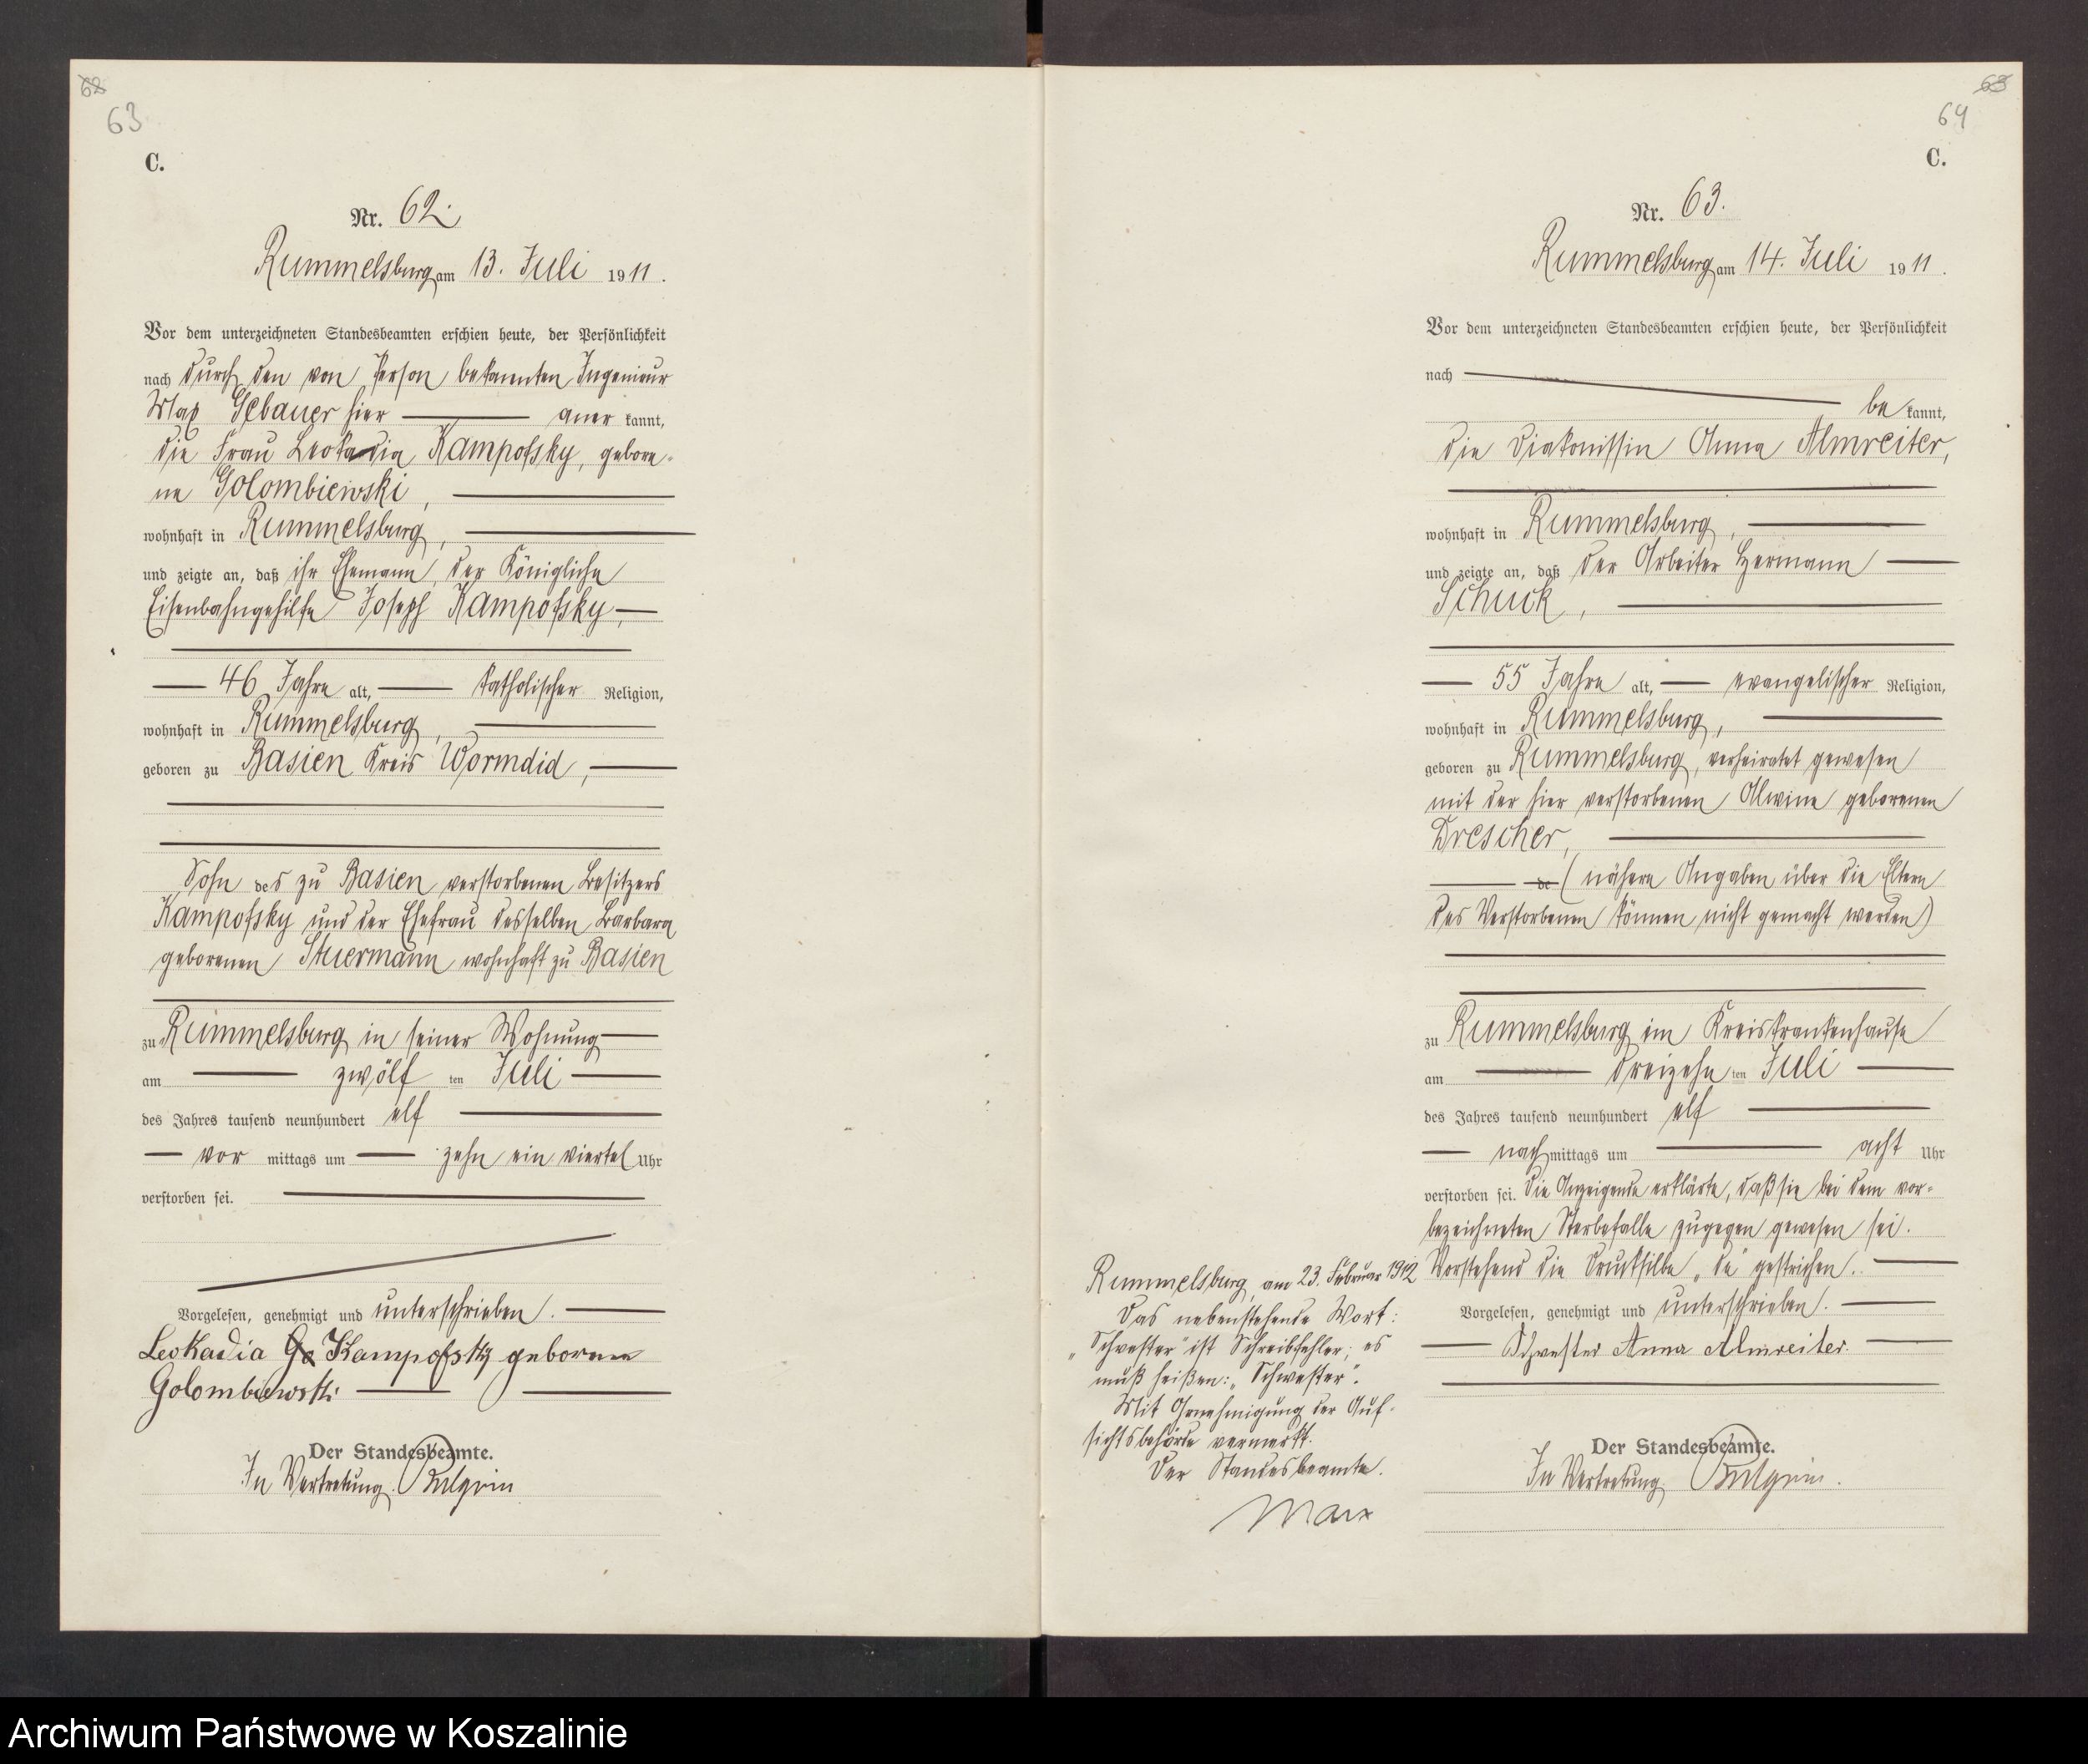 62
63
C.
Nr. 62.
Rummelsburg am 13. Juli 1911.
Vor dem unterzeichneten Standesbeamten erschien heute, der Persönlichkeit
nach durch den von Person bekannten Ingenieur
Max Gebauer hier anerkannt,
die Frau Leokadia Kampofsky, gebore-
ne Golombiewski,
wohnhaft in Rummelsburg,
und zeigte an, daß ihr Ehemann, der Königliche
Eisenbahngehilfe Joseph Kampofsky,
46 Jahre alt, katholischer Religion,
wohnhaft in Rummelsburg,
geboren zu Basien Kreis Wormdid,
Sohn des zu Basien verstorbenen Besitzers
Kampofsky und der Ehefrau desselben Barbara
geborenen Stuermann wohnhaft zu Basien
zu Rummelsburg in seiner Wohnung
am zwölften Juli
des Jahres tausend neunhundert elf
vormittags um zehn ein viertel Uhr
verstorben sei.
Vorgelesen, genehmigt und unterschrieben.
Leokadia Go Kampofsky geborene
Golombiewski
Der Standesbeamte.
In Vertretung.
63
64
C.
Nr. 63.
Rummelsburg am 14. Juli 1911.
Vor dem unterzeichneten Standesbeamten erschien heute, der Persönlichkeit
nach
bekannt,
die Diakonissin Anna Almreiter,
wohnhaft in Rummelsburg,
und zeigte an, daß der Arbeiter Hermann
Schuck,
55 Jahre alt, evangelischer Religion,
wohnhaft in Rummelsburg,
geboren zu Rummelsburg, verheiratet gewesen
mit der hier verstorbenen Alwine geborenen
Drescher,
de (nähere Angaben über die Eltern
des Verstorbenen können nicht gemacht werden)
zu Rummelsburg im Kreiskrankenhause
am dreizehnten Juli
des Jahres tausend neunhundert elf
nachmittags um acht Uhr
verstorben sei. Die Anzeigende erklärte, daß sie bei dem vor-
bezeichneten Sterbefalle zugegen gewesen sei.
Vorstehend die Drucksilbe "de" gestrichen.
Vorgelesen, genehmigt und unterschrieben.
Schwester Anna Almreiter.
Der Standesbeamte.
In Vertretung
Rummelsburg, am 23. Februar 1912
Das nebenstehende Wort:
"Schvester" ist Schreibfehler; es
muß heißen: "Schwester".
Mit Genehmigung der Auf-
sichtsbehörde vermerkt.
Der Standesbeamte.
Marx
Archiwum Państwowe w Koszalinie